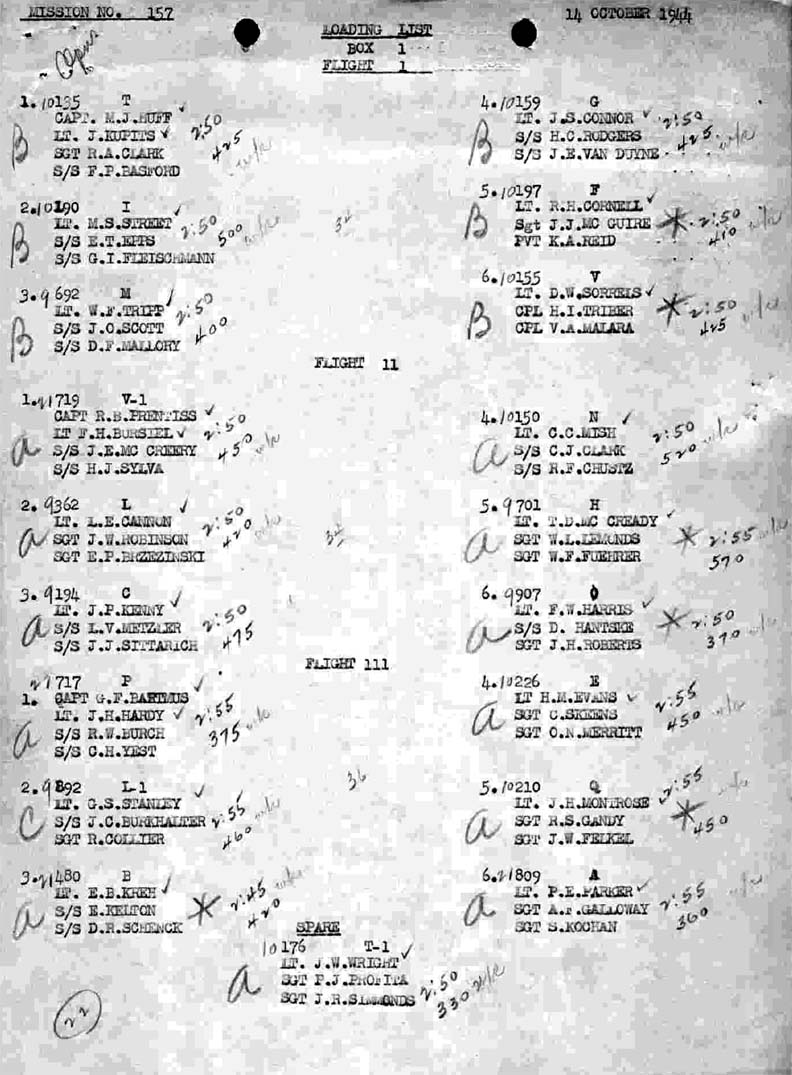 MISSION NO. 157
14 OCTOBER 1944
LOADING LIST
BOX 1
FLIGHT 1
1. 10135 T
CAPT. M.J.HUFF ✓
LT. J.KUPITS ✓ 2:50
SGT R.A.CLARK 425
S/S F.P.BASFORD
B
2. 10190 I
LT. M.S.STREET ✓ 2:50
S/S E.T.EPPS 500
S/S G.I.FLEISCHMANN
B
3. 9692 M
LT. W.F.TRIPP ✓ 2:50
S/S J.O.SCOTT 400
S/S D.F.MALLORY
B
4. 10159 G
LT. J.S.CONNOR ✓ 2:50
S/S H.C.RODGERS 425
S/S J.E.VAN DUYNE
B
5. 10197 F
LT. R.H.CORNELL ✓
Sgt J.J.MC GUIRE * 2:50
PVT K.A.REID 410
B
6. 10155 V
LT. D.W.SORRELS ✓
CPL H.I.TRIBER * 2:50
CPL V.A.MALARA 425
B
34
FLIGHT 11
1. 21719 V-1
CAPT R.B.PRENTISS ✓
LT F.H.BURSIEL ✓ 2:50
S/S J.E.MC CREERY 450
S/S H.J.SYLVA
a
2. 9362 L
LT. L.E.CANNON ✓ 2:50
SGT J.W.ROBINSON 420
SGT E.P.BRZEZINSKI
a
3. 9194 C
LT. J.P.KENNY ✓
S/S L.V.METZLER 2:50
S/S J.J.SITTARICH 475
a
4. 10150 N
LT. C.C.MISH ✓ 2:50
S/S C.J.CLARK 520
S/S R.F.CHUSTZ
a
5. 9701 H
LT. T.D.MC CREADY ✓
SGT W.L.LEMONDS * 2:55
SGT W.F.FUEHRER 570
a
6. 9907 O
LT. F.W.HARRIS ✓
S/S D. HANTSKE * 2:50
SGT J.H.ROBERTS 370
a
FLIGHT 111
21717 P
1. CAPT G.F.BARTMUS ✓
LT. J.H.HARDY ✓ 2:55
S/S R.W.BURCH 375
S/S C.H.YEST
a
2. 9892 L-1
LT. G.S.STANLEY ✓
S/S J.C.BURKHALTER 2:55
SGT R.COLLIER 460
C
3. 21480 B
LT. E.B.KREH ✓ 2:45
S/S E.KELTON * 420
S/S D.R.SCHENCK
a
4. 10226 E
LT H.M.EVANS ✓ 2:55
SGT C.SKEENS 450
SGT O.N.MERRITT
a
5. 10210 Q
LT. J.H.MONTROSE ✓ 2:55
SGT R.S.GANDY * 450
SGT J.W.FELKEL
a
6. 21809 A
LT. P.E.PARKER ✓
SGT A.F.GALLOWAY 2:55
SGT S.KOCHAN 360
a
36
SPARE
10176 T-1
LT. J.W.WRIGHT ✓
SGT P.J.PROFITA 2:50
SGT J.R.SIMMONDS 330
a
22